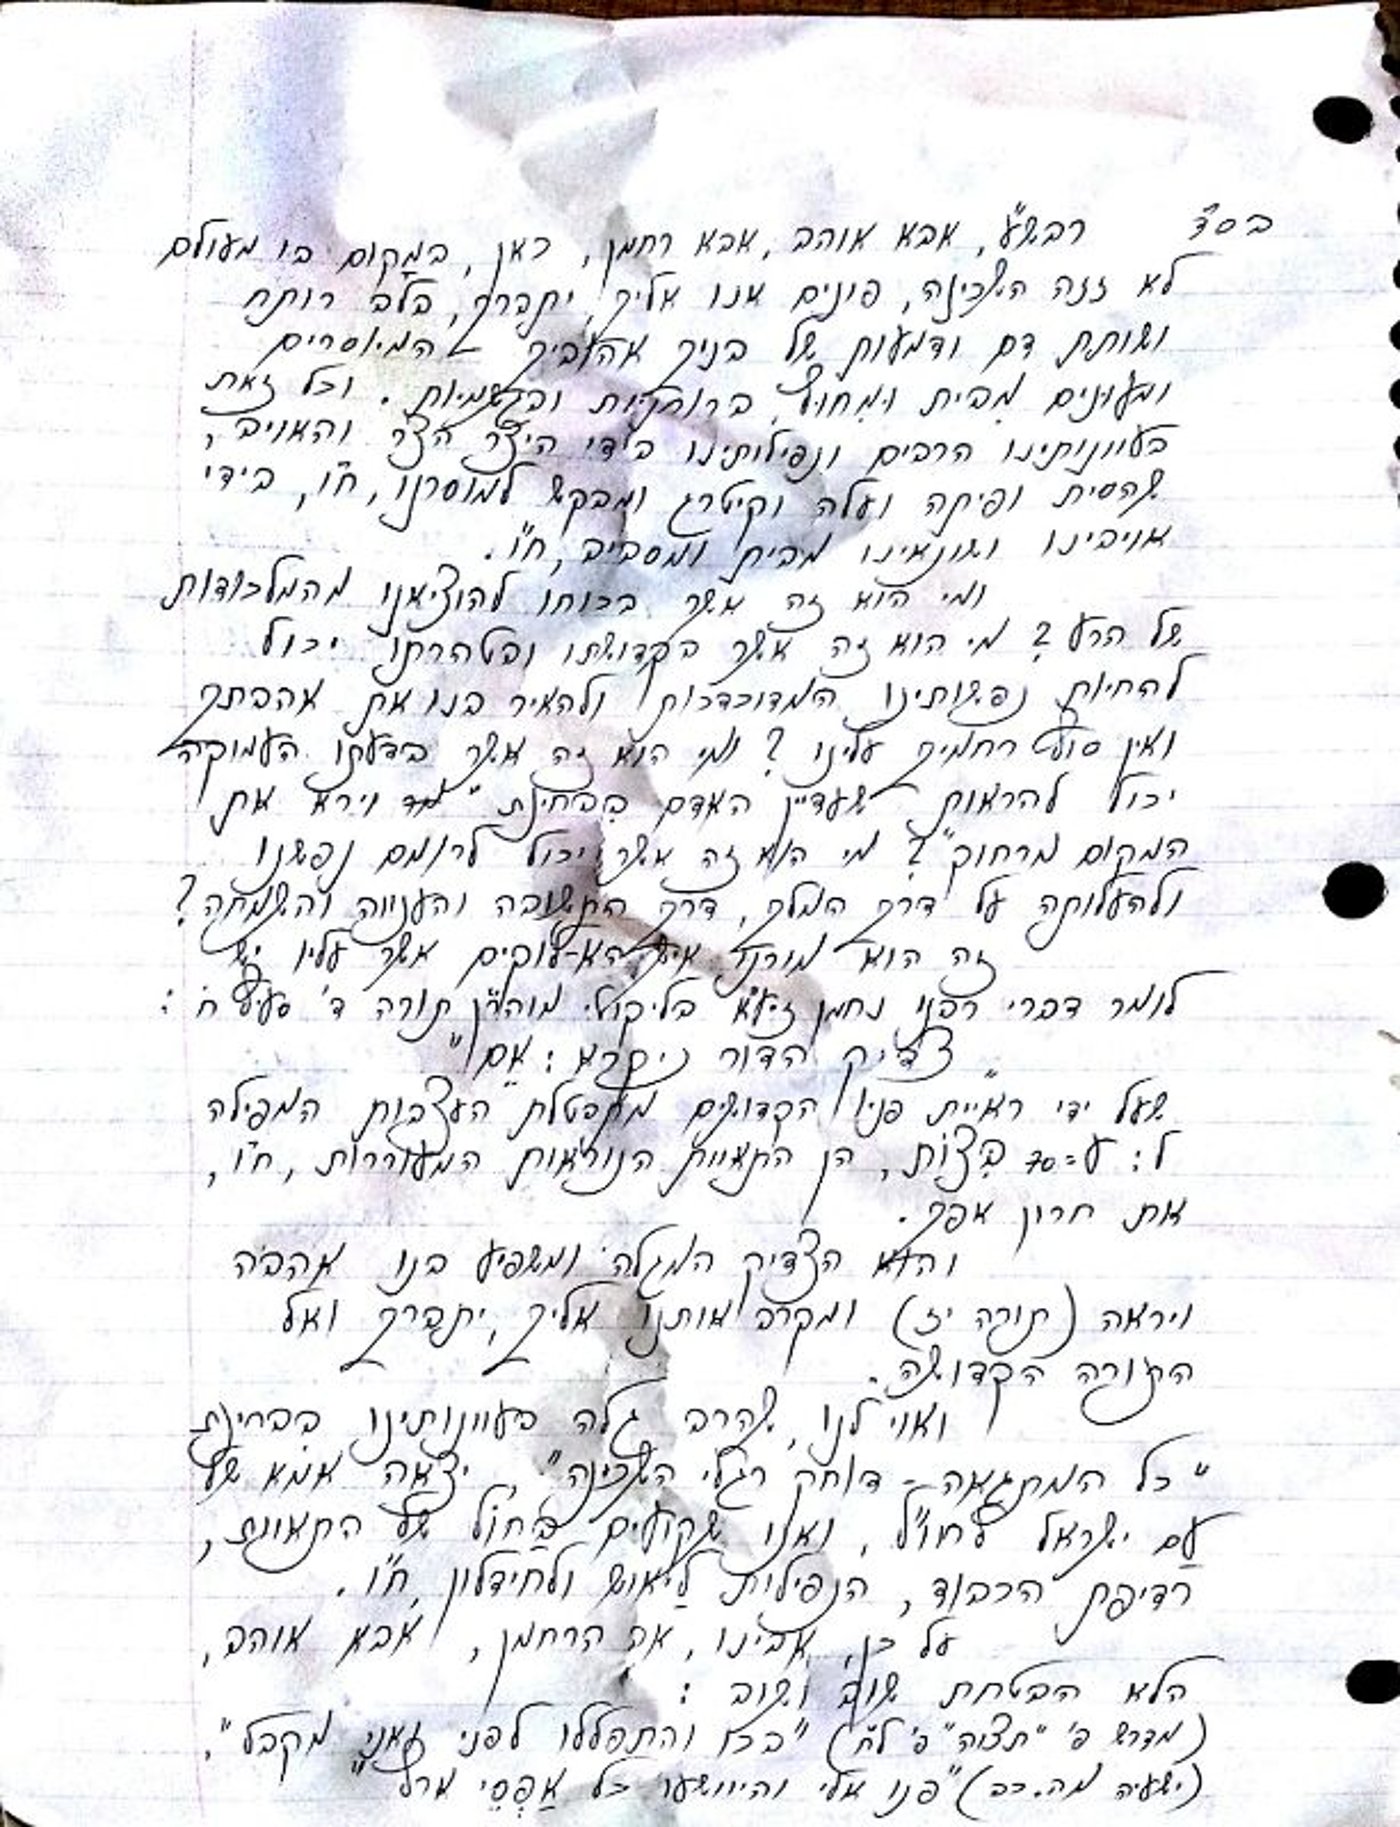 בס"ד רבש"ע, אבא אוהב, אבא רחמן, כאן, במָקום בו מעולם
לא זזה השכינה, פונים אנו אליך, יתברך, בלב רותח
ושותת דם ודמעות של בניך אהוביך המיוסרים
ומעונים מִבית ומִחוץ, ברוחניות ובגשמיות. וכל זאת
בעוונותינו הרבים ונפילותינו בידי היצר הצר והאויב,
שהסית ופיתה ועלה וקיטרג ומבקש למוסרנו, ח"ו, בידי
אויבינו ושונאינו מבית ומסביב, ח"ו.
ומי הוא זה אשר בכוחו להוציאנו מהמלכודות
של הרע? מי הוא זה אשר בקדושתו ובטהרתו יכול
להחיות נפשותינו המדוכדכות ולהאיר בנו את אהבתך
ואין סוף רחמיך עלינו? ומי הוא זה אשר בדעתו העמוקה
יכול להראות שעדיין האדם בִבחינת "וירא את
המקום מרחוק"? מי הוא זה אשר יכול לרומם נפשנו
ולהעלותה על דרך המלך, דרך התשובה והענווה והשמחה?
זה הוא מורנו איש הא-לוקים אשר עליו יש
לומר דברי רבנו נחמן זיע"א בליקוטי מוהר"ן תורה ד' סעיף ח':
"צדיק הדור ניקרא: אֵם"
שעל ידי ראיית פניו הקדושים מתבטלת העצבות המפילה
ל: ע=70 בִּצּוֹת, הן התאוות הנוראות המעוררות, ח"ו,
את חרון אפך.
והוא הצדיק המגלה ומשפיע בנו אהבה
ויראה (תורה יז) ומקרב אותנו אליך, יתברך ואל
התורה הקדושה.
ואוי לנו, שהרב גלה בעוונותינו בִבחינת
"כל המתגאה - דוחק רגלי השכינה", יצאה אמא של
עַם ישראל לחו"ל, ואנו שקועים בַּחוֹל של התאוות,
רדיפת הכבוד, הנפילות לַיאוש ולחידלון, ח"ו.
על כן, אבינו, אב הרחמן, אבא אוהב,
הלא הבטחת שוב ושוב:
(מדרש פ' "תצוה" פ' ל"ח) "בכו והתפללו לפני ואני מקבל",
(ישעיה מה.כב) "פנו אלי והיוושעו כל אַפְסֵי ארץ"